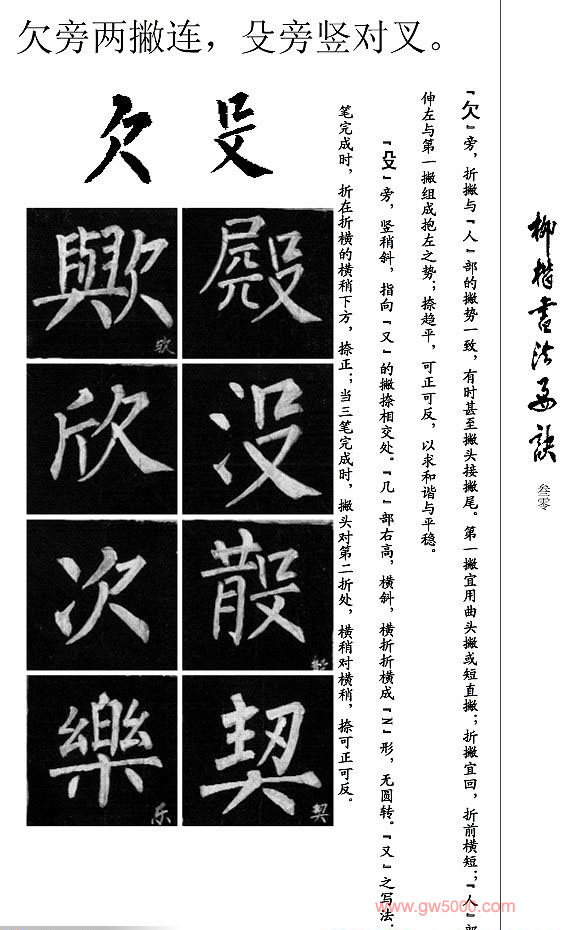 欠旁两撇连，殳旁竖对叉。
欠 殳
柳楷書法要訣
叁零
『欠』旁，折撇与『人』部的撇势一致，有时甚至撇头接撇尾。第一撇宜用曲头撇或短直撇；折撇宜回，折前横短；『人』部
伸左与第一撇组成抱左之势；捺趋平，可正可反，以求和谐与平稳。
『殳』旁，竖稍斜，指向『又』的撇捺相交处。『几』部右高，横斜，横折折横成『乙』形，无圆转。『又』之写法：
笔完成时，折在折横的横稍下方，捺正；当三笔完成时，撇头对第二折处，横稍对横稍，捺可正可反。
歟 欤 殿
欣 没
次
樂 乐 契 契
www.gw5000.com